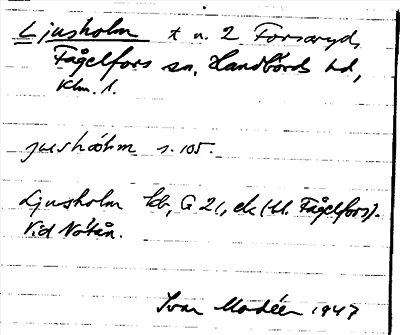 Ljusholm t n. 2 Forsaryd,
Fågelfors sn, Handbörds hd,
Klm. l.
jushòhm s. 105.
Ljusholm tb, G 21, ek (bl. Fågelfors).
Vid Nötån.
Ivar Modéer 1947